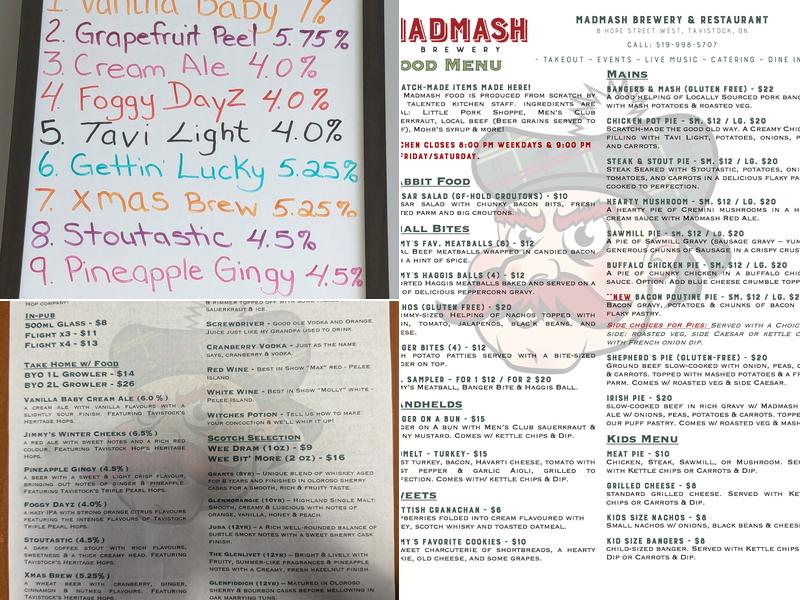 1. Vanilla Baby 7%
2. Grapefruit Peel 5.75%
3. Cream Ale 4.0%
4. Foggy DayZ 4.0%
5. Tavi Light 4.0%
6. Gettin' Lucky 5.25%
7. Xmas Brew 5.25%
8. Stoutastic 4.5%
9. Pineapple Gingy 4.5%
In-Pub
500ml Glass - $8
Flight x3 - $11
Flight x4 - $13
Take Home w/ Food
BYO 1L Growler - $14
BYO 2L Growler - $26
Vanilla Baby Cream Ale (6.0 %)
a cream ale with vanilla flavours with a
slightly sour finish. Featuring Tavistock's
Heritage Hops.
Jimmy's Winter Cheeks (6.5%)
a red ale with sweet notes and a rich red
colour. Featuring Tavistock's Heritage
Hops.
Pineapple Gingy (4.5%)
a beer with a sweet & light crisp flavour,
bringing out notes of ginger & pineapple.
Featuring Tavistock's Triple Pearl Hops.
Foggy Dayz (4.0%)
a hazy IPA with strong orange citrus flavours
featuring the intense flavours of Tavistock
Triple Pearl Hops.
Stoutastic (4.5%)
a dark coffee stout with rich flavours,
sweetness & a thick creamy head. Featuring
Tavistock's Heritage Hops.
Xmas Brew (5.25%)
a wheat beer with cranberry, ginger,
cinnamon & nutmeg flavours. Featuring
& rimmer topped off with
sauerkraut & ice
Screwdriver - good ole vodka and orange
juice just like my grandpa used to drink.
Cranberry Vodka - just as the name
says, cranberry & vodka.
Red Wine - Best in Show "Max" red - Pelee
Island.
White Wine - Best in Show "Molly" white -
Pelee Island.
Witches Potion - Tell us how to make
your concoction & we'll whip it up!
Scotch Selection
Wee Dram (1oz) - $9
Wee Bit' More (2 oz) - $16
Grants (8yr) - Unique blend of whiskey aged
for 8 years and finished in oloroso sherry
casks for a smooth, rich & fruity taste.
Glenmorangie (10yr) - Highland Single Malt:
Smooth, creamy & luscious with notes of
orange, vanilla, honey & peach.
Jura (12yr) - a rich well-rounded balance of
subtle smoky notes with a sweet sherry cask
finish.
The Glenlivet (12yr) - Bright & lively with
fruity, summer-like fragrances & pineapple
notes with a creamy, fresh hazelnut finish.
Glenfiddich (12yr) - Matured in Oloroso
sherry & bourbon casks before mellowing in
oak marrying tuns.
MADMASH
BREWERY
OOD MENU
MADMASH BREWERY & RESTAURANT
8 HOPE STREET WEST, TAVISTOCK, ON
CALL: 519-998-5707
- TAKEOUT - EVENTS - LIVE MUSIC - CATERING - DINE IN
ATCH-MADE ITEMS MADE HERE!
MADMASH FOOD IS PRODUCED FROM SCRATCH BY
TALENTED KITCHEN STAFF. INGREDIENTS ARE
AL: LITTLE PORK SHOPPE, MEN'S CLUB
ERKRAUT, LOCAL BEEF (BEER GRAINS SERVED TO
F), MOHR'S SYRUP & MORE!
CHEN CLOSES 8:00 PM WEEKDAYS & 9:00 PM
FRIDAY/SATURDAY.
ABBIT FOOD
SAR SALAD (GF-HOLD CROUTONS) - $10
SAR SALAD WITH CHUNKY BACON BITS, FRESH
TED PARM AND BIG CROUTONS.
ALL BITES
MY'S FAV. MEATBALLS (6) - $12
AL BEEF MEATBALLS WRAPPED IN CANDIED BACON
H A HINT OF SPICE.
MY'S HAGGIS BALLS (4) - $12
ORTED HAGGIS MEATBALLS BAKED AND SERVED ON A
OF DELICIOUS PEPPERCORN GRAVY.
HOS (GLUTEN FREE) - $20
MMY-SIZED HELPING OF NACHOS TOPPED WITH
ON, TOMATO, JALAPENOS, BLACK BEANS,
ESE.
GER BITES (4) - $12
H POTATO PATTIES SERVED WITH A BITE-SIZED
GER ON TOP.
. SAMPLER - FOR 1 $12 / FOR 2 $20
MY'S MEATBALL, BANGER BITE & HAGGIS BALL.
ANDHELDS
GER ON A BUN - $15
GER ON A BUN WITH MEN'S CLUB SAUERKRAUT &
NY MUSTARD. COMES W/ KETTLE CHIPS & DIP.
OMELT - TURKEY- $15
ST TURKEY, BACON, HAVARTI CHEESE, TOMATO WITH
ST PEPPER & GARLIC AIOLI, GRILLED TO
FECTION. COMES WITH/ KETTLE CHIPS & DIP.
WEETS
TTISH GRANACHAN - $6
PBERRIES FOLDED INTO CREAM FLAVOURED WITH
EY, SCOTCH WHISKY AND TOASTED OATMEAL.
MY'S FAVORITE COOKIES - $10
WEET CHARCUTERIE OF SHORTBREADS, A HEARTY
KIE, OLD CHEESE, AND SOME GRAPES.
MAINS
BANGERS & MASH (GLUTEN FREE) - $22
A GOOD HELPING OF LOCALLY SOURCED PORK BANG
WITH MASH POTATOES & ROASTED VEG.
CHICKEN POT PIE - SM. $12 / LG. $20
SCRATCH-MADE THE GOOD OLD WAY. A CREAMY CHIC
FILLING WITH TAVI LIGHT, POTATOES, ONIONS, P
AND CARROTS.
STEAK & STOUT PIE - SM. $12 / LG. $20
STEAK SEARED WITH STOUTASTIC, POTATOES, ONI
TOMATOES, AND CARROTS IN A DELICIOUS FLAKY PA
COOKED TO PERFECTION.
HEARTY MUSHROOM - SM. $12 / LG. $20
A HEARTY PIE OF CREMINI MUSHROOMS IN A H
CREAM SAUCE WITH MADMASH RED ALE.
SAWMILL PIE - SM. $12 / LG. $20
A PIE OF SAWMILL GRAVY (SAUSAGE GRAVY – YUM
GENEROUS CHUNKS OF SAUSAGE IN A CRISPY CRUS
BUFFALO CHICKEN PIE - SM. $12 / LG. $20
A PIE OF CHUNKY CHICKEN IN A BUFFALO CHIC
SAUCE. OPTION: ADD BLUE CHEESE CRUMBLE TOPP
**NEW BACON POUTINE PIE - SM. $12 / LG. $2
BACON GRAVY, POTATOES & CHUNKS OF BACON IN
FLAKY PASTRY.
SIDE CHOICES FOR PIES: SERVED WITH A CHOIC
SIDE: ROASTED VEG, SIDE CAESAR OR KETTLE C
WITH FRENCH ONION DIP.
SHEPHERD'S PIE (GLUTEN-FREE) - $20
GROUND BEEF SLOW-COOKED WITH ONION, PEAS, C
& CARROTS. TOPPED WITH MASHED POTATOES & A FR
PARM. COMES W/ ROASTED VEG & SIDE CAESAR.
IRISH PIE - $20
SLOW-COOKED BEEF IN RICH GRAVY W/ MADMASH
ALE W/ ONIONS, PEAS, POTATOES & CARROTS. TOPPE
OUR PUFF PASTRY. COMES W/ ROASTED VEG & MASH
KIDS MENU
MEAT PIE - $10
CHICKEN, STEAK, SAWMILL, OR MUSHROOM. SER
WITH KETTLE CHIPS OR CARROTS & DIP.
GRILLED CHEESE - $8
STANDARD GRILLED CHEESE. SERVED WITH KE
CHIPS OR CARROTS & DIP.
KIDS SIZE NACHOS - $6
SMALL NACHOS W/ ONIONS, BLACK BEANS & CHEES
KID SIZE BANGERS - $8
CHILD-SIZED BANGER. SERVED WITH KETTLE CHIPS
DIP OR CARROTS & DIP.